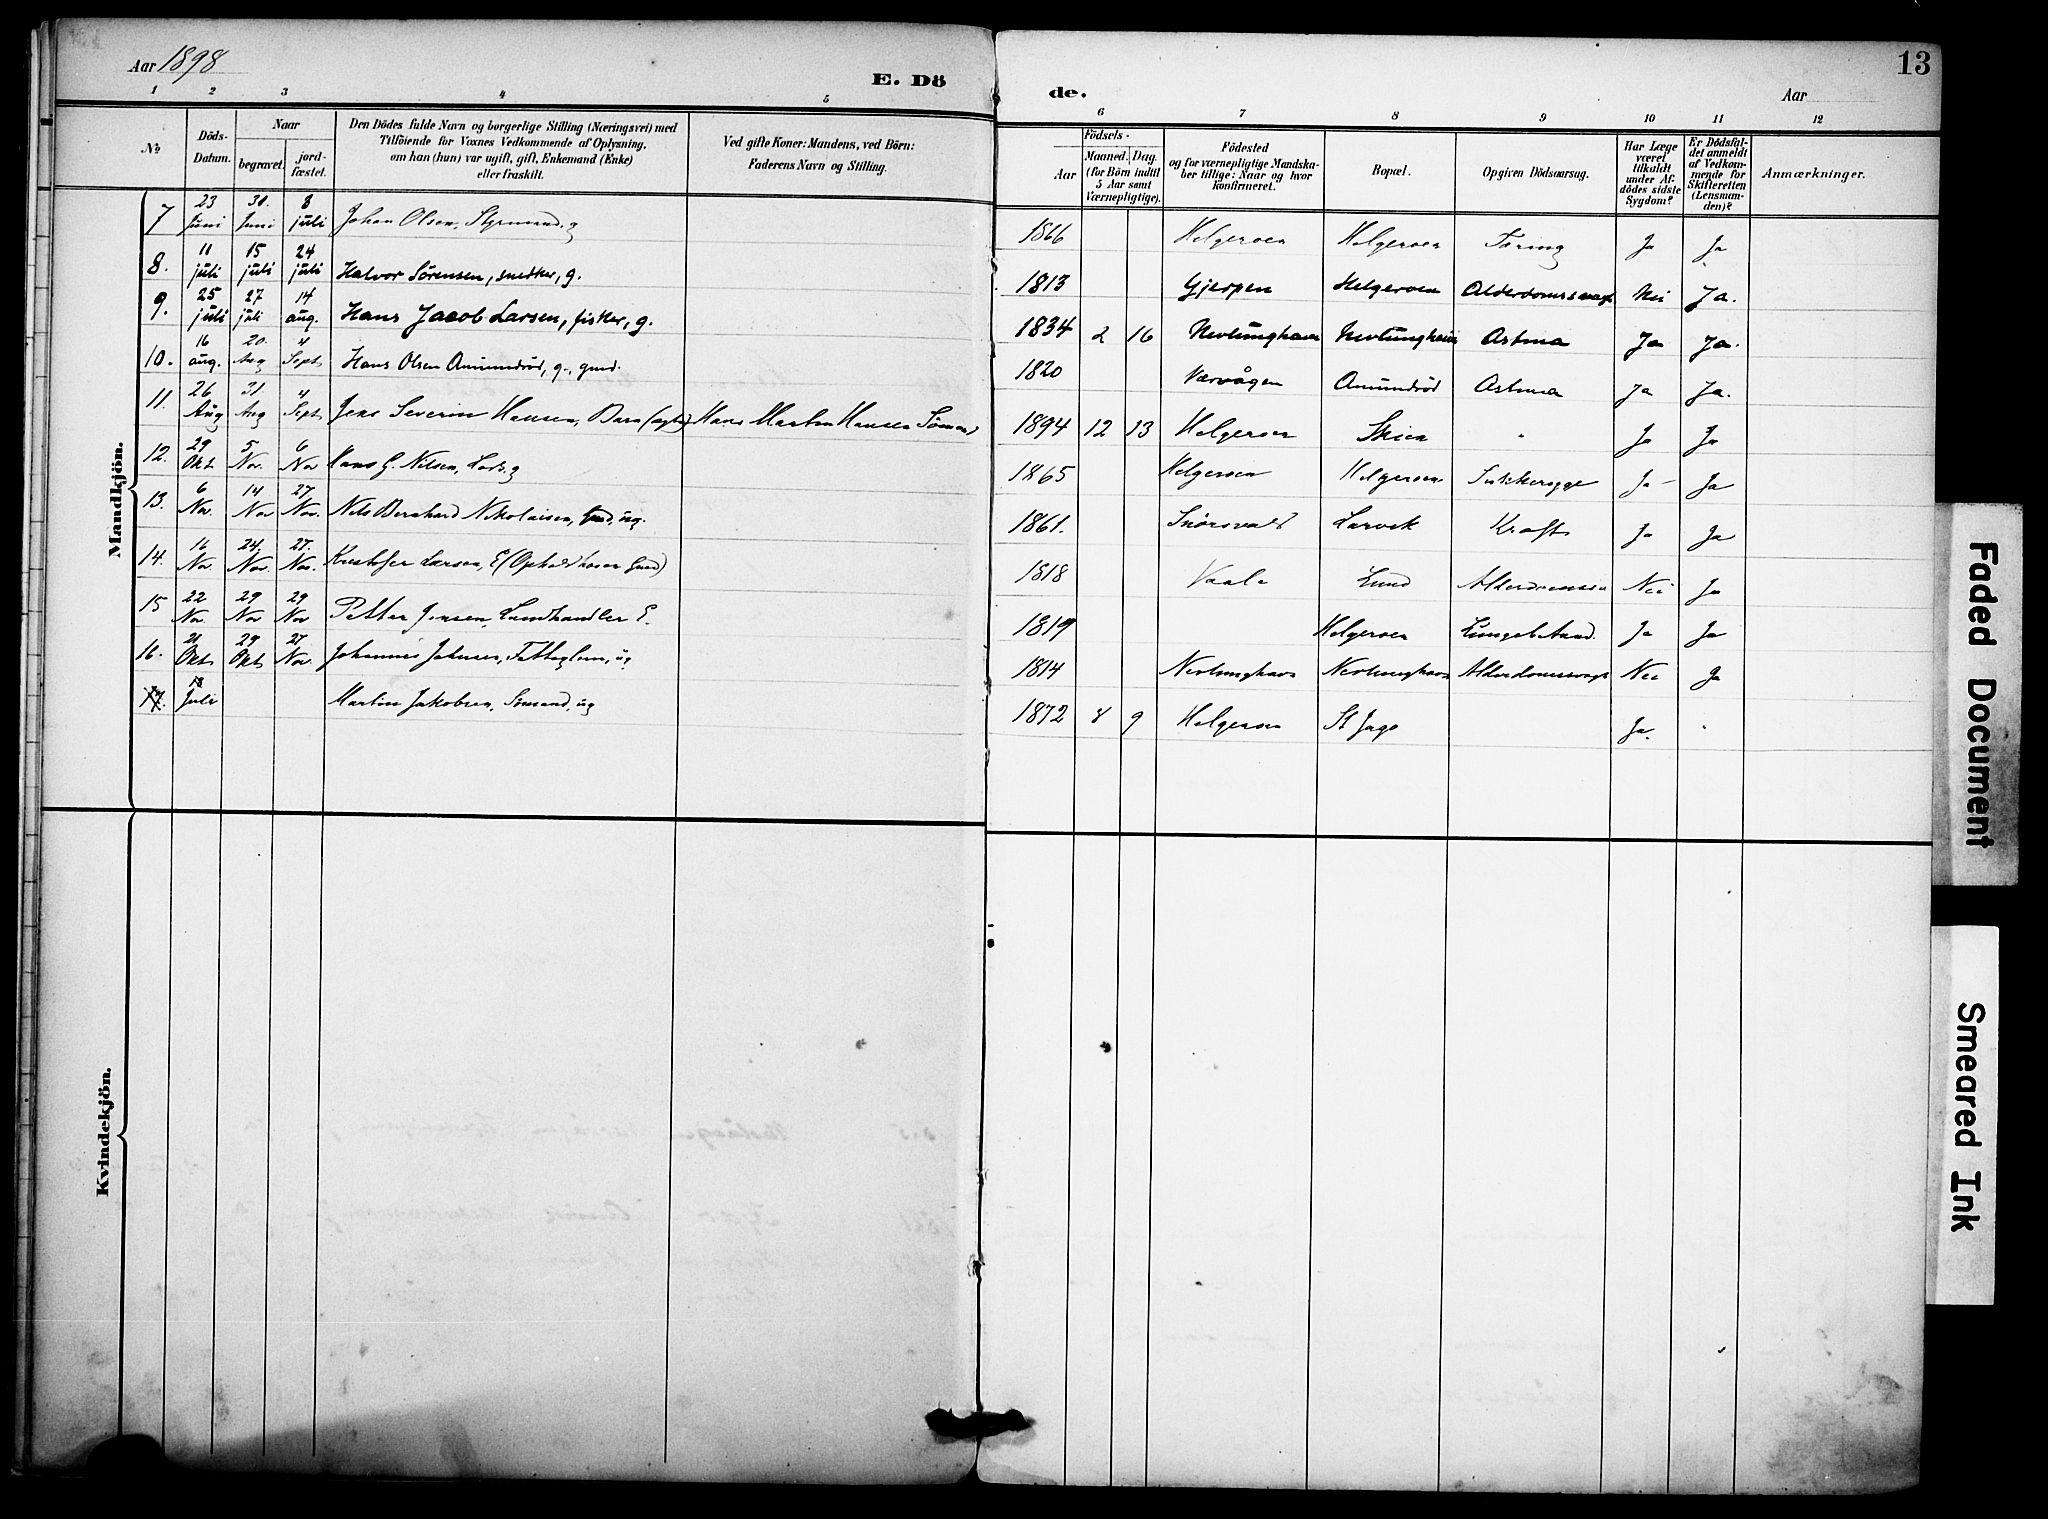 Aar 1898
E. Dö
de.
Aar
13
1 2 3 4 5 6 7 8 9 10 11 12
No
Döds-Datum.
Naar
begravet.
jord-fæstet.
Den Dödes fulde Navn og borgerlige Stilling (Næringsvei) med
Tilföiende for Voxnes Vedkommende af Oplysning,
om han (hun) var ugift, gift, Enkemand (Enke)
eller fraskilt.
Ved gifte Koner: Mandens, ved Börn:
Faderens Navn og Stilling.
Födsels-
Aar
Maaned.
Dag.
(for Börn indtil
5 Aar samt
Værnepligtige).
Födested
og for værnepligtige Mandska-
ber tillige: Naar og hvor
konfirmeret.
Bopæl.
Opgiven Dödsaarsag.
Har Læge
været
tilkaldt
under Af-
dödes sidste
Sygdom?
Er Dödsfal-
det anmeldt
af Vedkom-
mende for
Skifteretten
(Lensman-
den)?
Anmærkninger.
Mandkjön.
7 23 Juni 30. Juni 3 juli Johan Olsen, Styrmand, g 1866 Helgeroen Helgeroen Tæring Ja Ja
8. 11 juli 15 juli 24 juli Halvor Sørensen, snedker, g. 1813 Gjerpen Helgeroen Alderdomssvagh Nei Ja.
9. 25 juli 27 juli 14 aug. Hans Jacob Larsen, fisker, g. 1834 2 16 Nevlunghavn Nevlunghavn Astma Ja Ja.
10. 16 aug. 20. Aug 4 Sept Hans Olsen Amundrød, g., gmd. 1820 Værvågen Amundrød Astma Ja Ja.
11. 26 Aug 31 Aug 4 Sept Jens Severin Hansen, Barn (ægte) Hans Martin Hansen Sømand 1894 12 13 Helgeroen Skien " Ja Ja
12. 29 Okt 5 Nov. 6 Nov Hans G. Nilsen, Lods, g 1865 Helgeroen Helgeroen Sukkersyge Ja Ja
13. 6 Nov. 14 Nov 27. Nov. Nils Bernhard Nikolaisen, ug. 1861. Larvik Kræft Ja Ja
14. 16 Nov. 24. Nov. 27. Nov. Kristofer Larsen, E (Ophold hos en Gmd) 1818 Vaale Lund Nei Ja
15 22 Nov. 29 Nov 29 Nov Petter Jensen, Landhandler E. 1819 Helgeroen Lungebetænd. Ja Ja
16. 21 Okt 29 Okt 27 Nov. Johannes Johnsen, Fattiglem, ug 1814 Nevlunghavn Nevlunghavn Alderdomssvagh Nei Ja
17. 18 Juli Martin Jakobsen, Sømand, ug 1872 8 9 Helgeroen St Jago Ja. "
Kvindekjön.
Faded Document
Smeared Ink